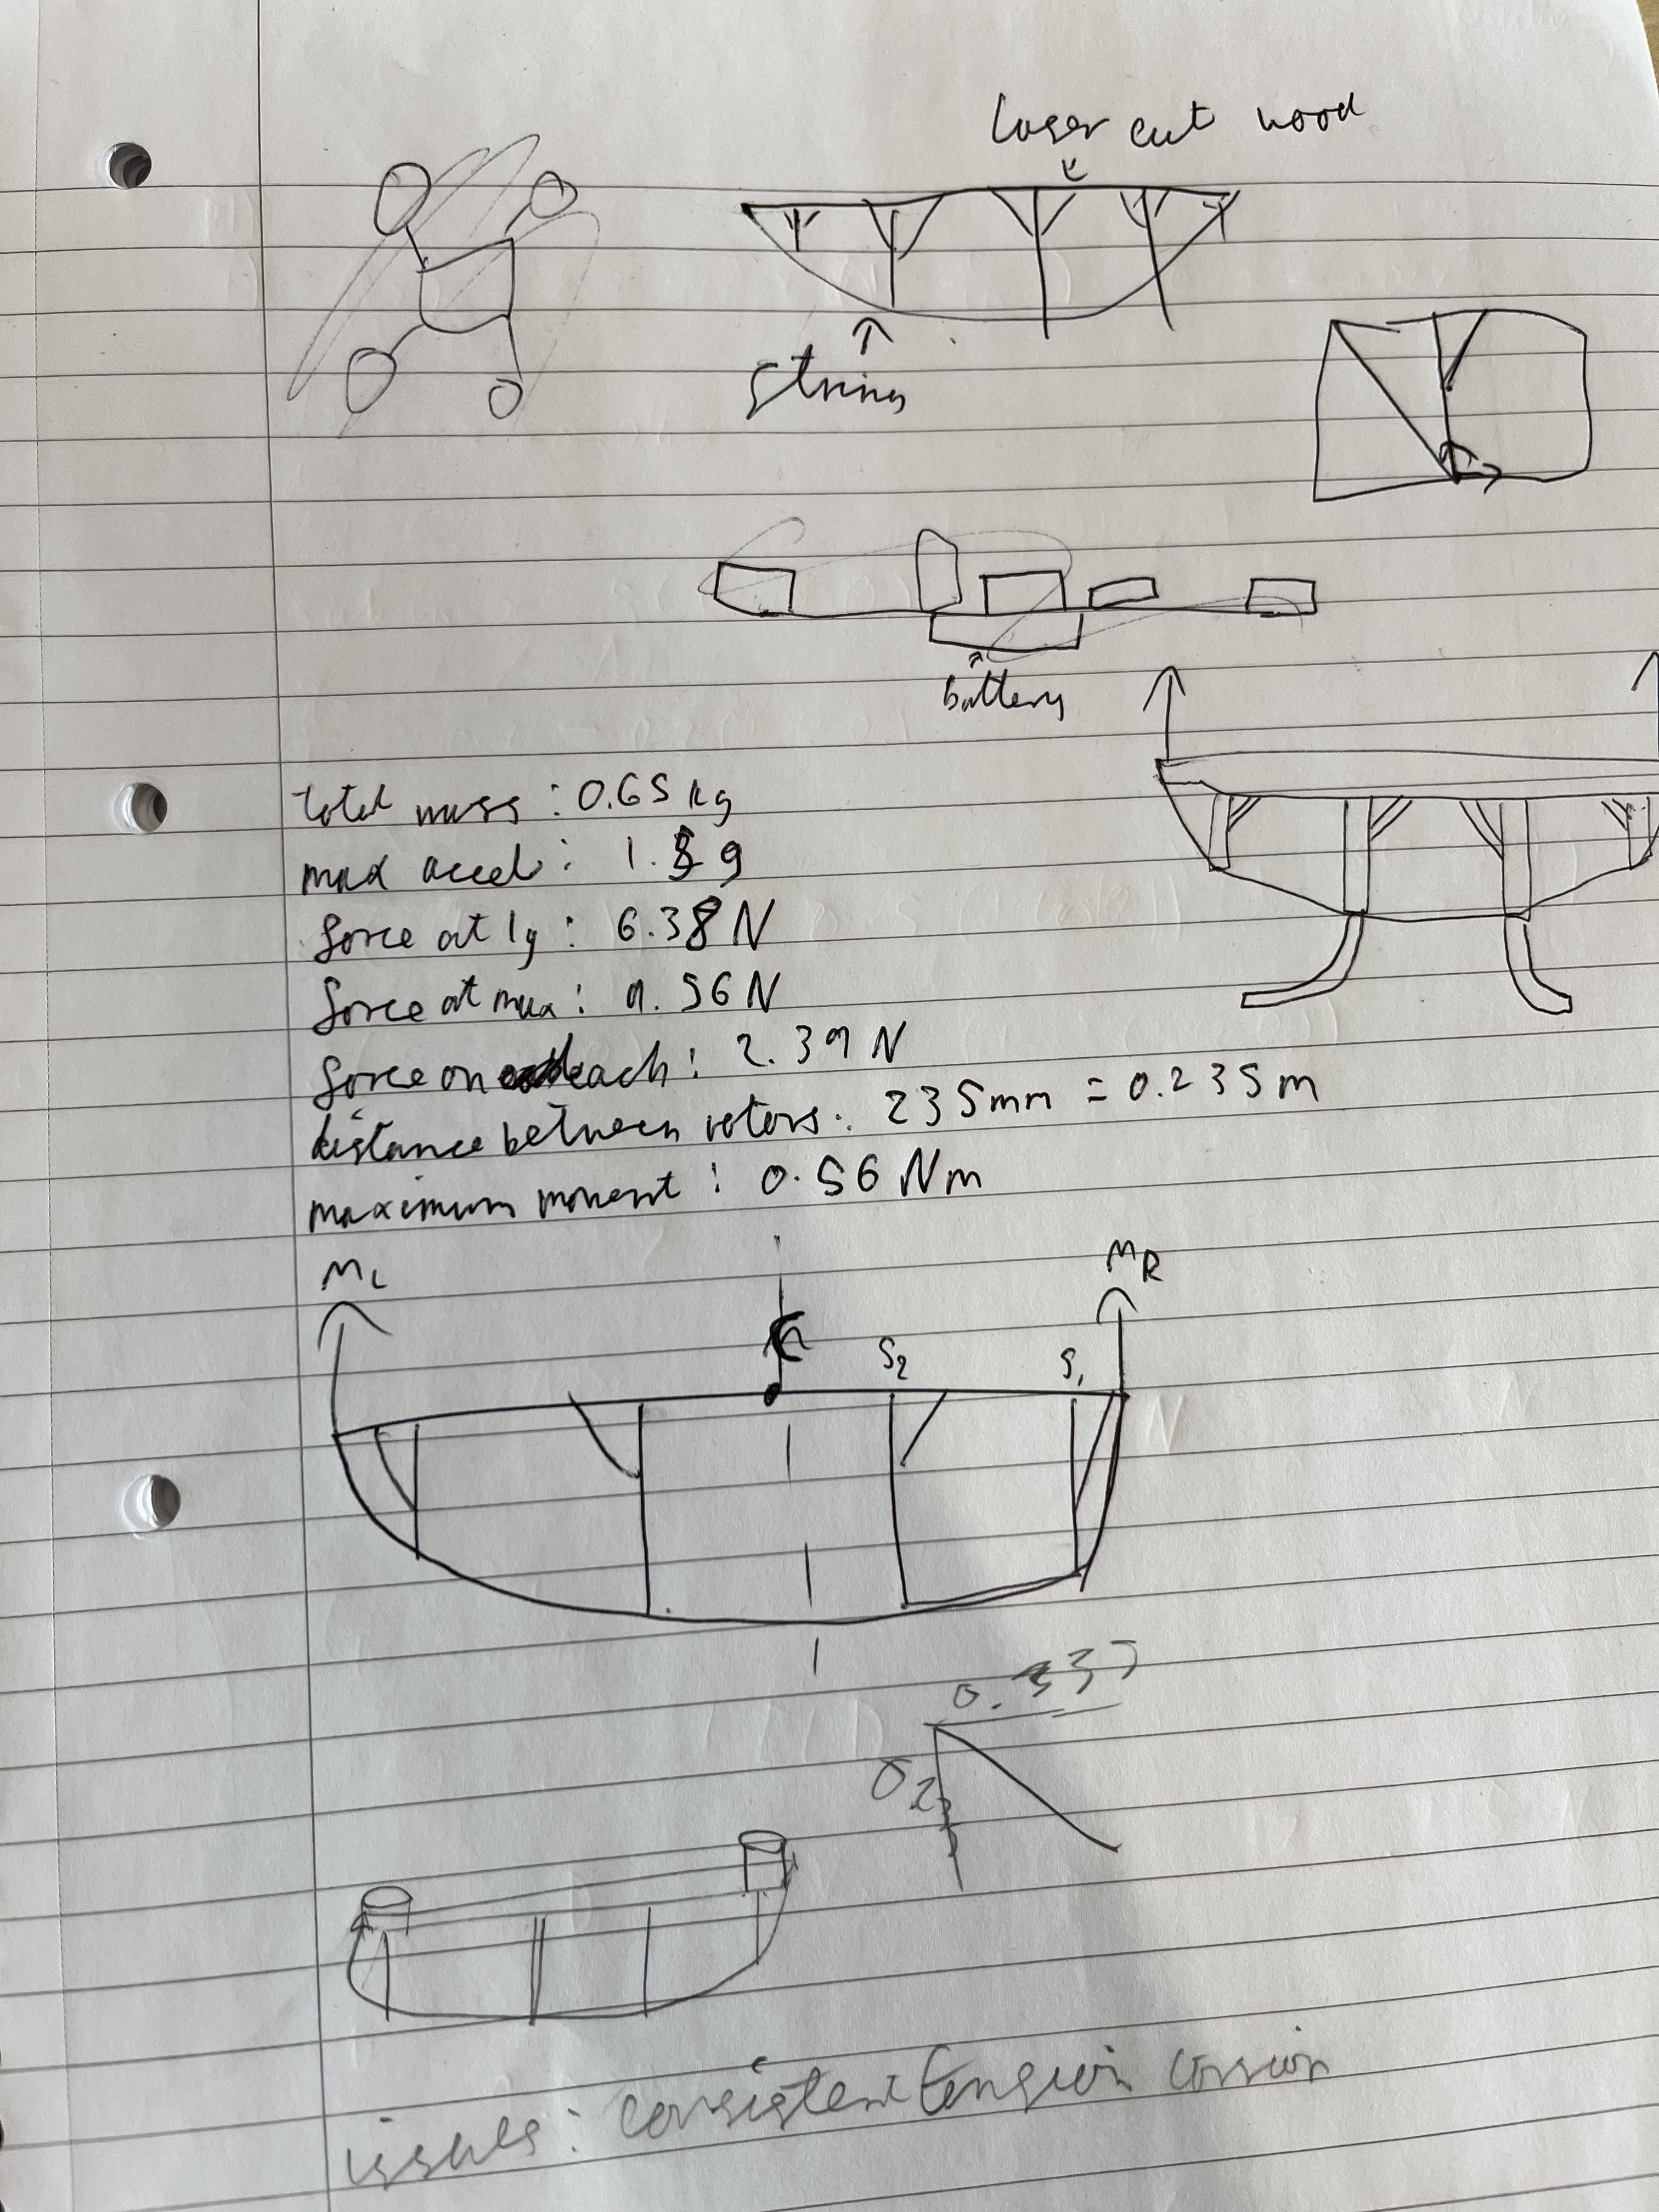 laser cut wood
string
battery
total mass : 0.65 kg
max accel : 1.5 g
force at 1g : 6.38 N
force at max : 9.56 N
force on each : 2.39 N
distance between rotors : 235mm = 0.235m
maximum moment : 0.56 Nm
ML
MR
S2
S1
issues : consistent tension